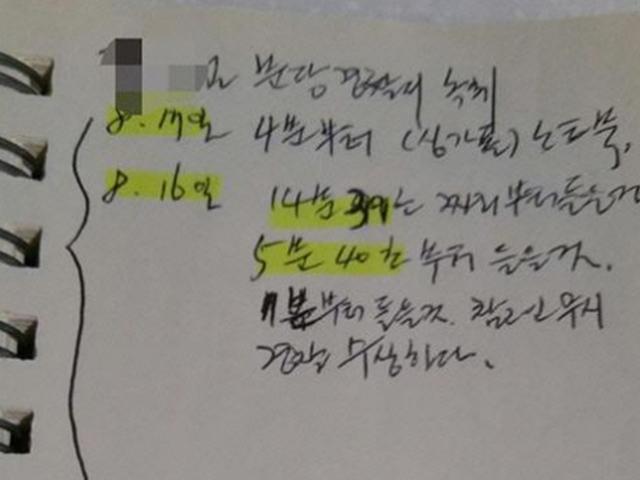 분당경찰서 녹취
8.17일 4분부터 (싱가폴) 노트북.
8.16일 14분 39 는 짜리부터 들을것
5분 40초 부터 들을것.
부터 들을것. 참고인 무시
경찰 수상하다.